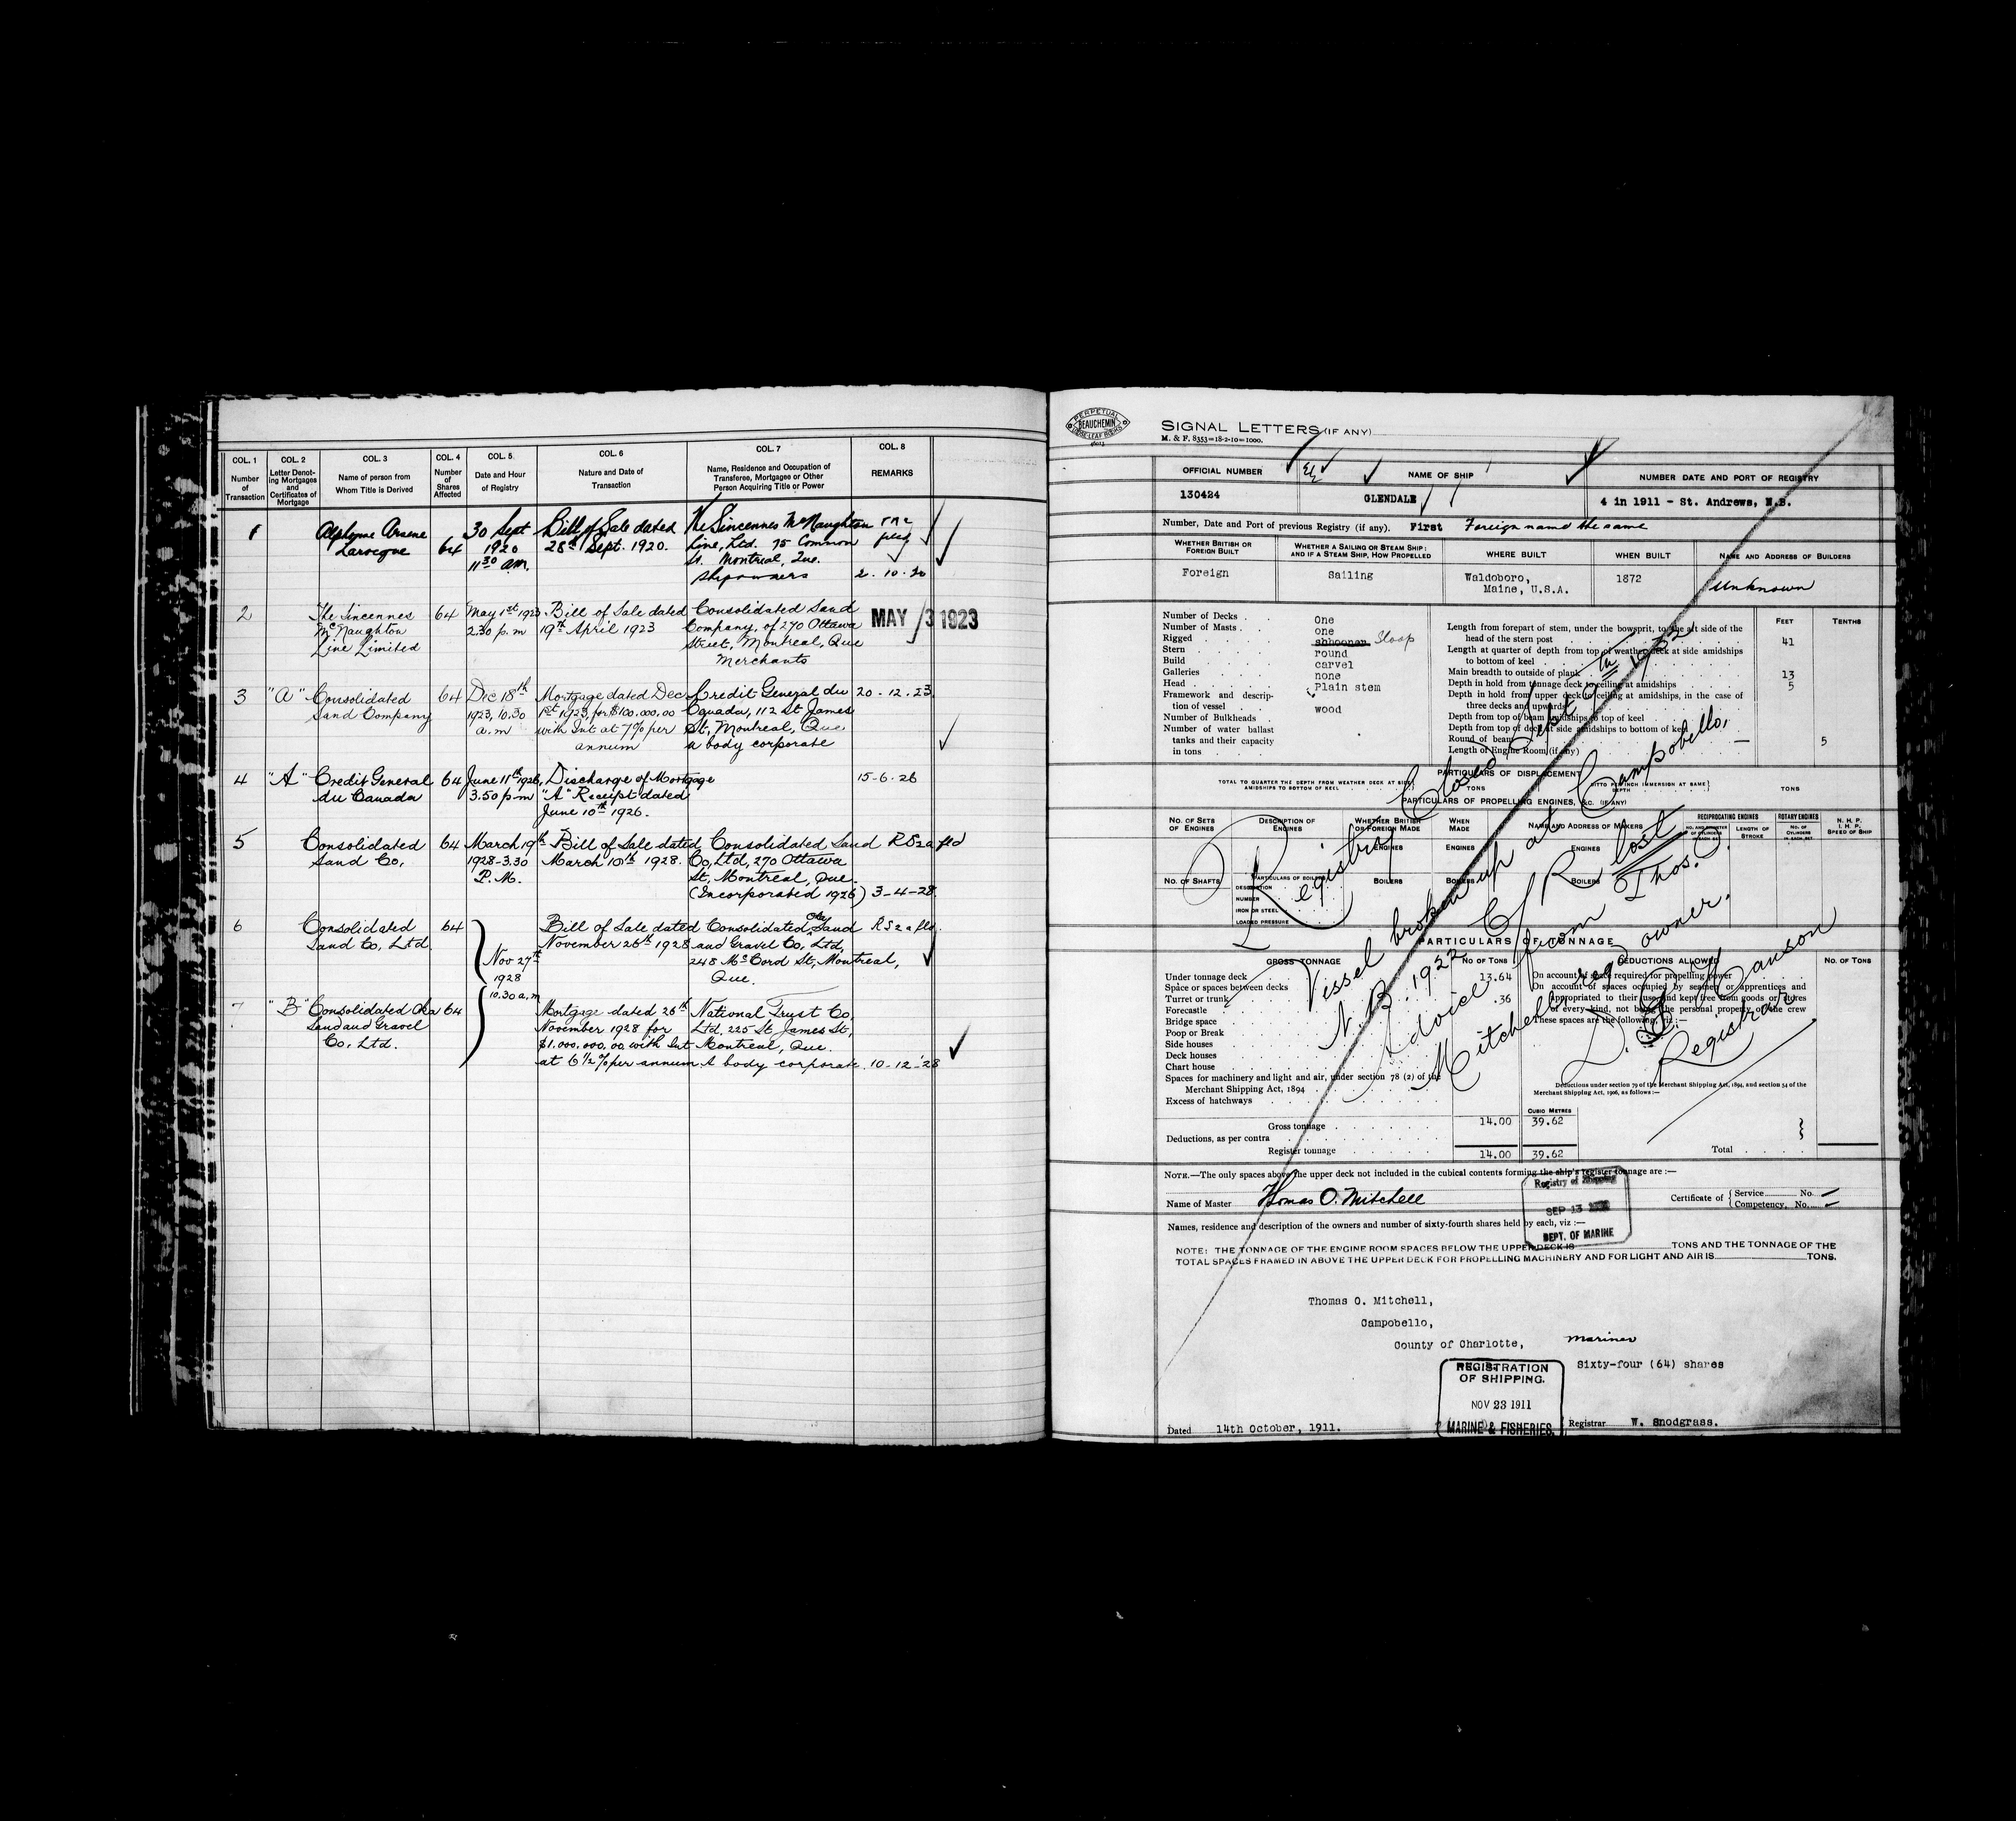 COL. 1 COL. 2 COL. 3 COL. 4 COL. 5 COL. 6 COL. 7 COL. 8
Number of Transaction
Letter Denoting Mortgages and Certificates of Mortgage
Name of person from Whom Title is Derived
Number of Shares Affected
Date and Hour of Registry
Nature and Date of Transaction
Name, Residence and Occupation of Transferee, Mortgagee or Other Person Acquiring Title or Power
REMARKS
1 Alphonse Arsene 30 Sept Bill of Sale dated The Sincennes McNaughton
Larocque 64 1920 28th Sept. 1920. Line, Ltd. 75 Common
11 30 a.m. St. Montreal, Que.
Shipowners 2.10.20
2 The Sincennes 64 May 1st 1923 Bill of Sale dated Consolidated Sand MAY 3 1923
McNaughton 2.30 p.m 19th April 1923 Company, of 270 Ottawa
Line Limited Street, Montreal, Que
Merchants
3 "A" Consolidated 64 Dec 18th Mortgage dated Dec Credit General du 20.12.23
Sand Company 1923, 10.30 1st 1923, for $100.000.00 Canada, 112 St James
a.m with Int at 7% per St, Montreal, Que
annum a body corporate
4 "A" Credit General 64 June 11th 1926, Discharge of Mortgage 15-6-26
du Canada 3.50 p m "A" Receipt dated
June 10th 1926.
5 Consolidated 64 March 19th Bill of Sale dated Consolidated Sand RS2a fld
Sand Co, 1928-3.30 March 10th 1928. Co, Ltd, 270 Ottawa
P.M. St, Montreal, Que.
(Incorporated 1926) 3-4-28.
6 Consolidated 64 Bill of Sale dated Consolidated Oka Sand RS2a fld.
Sand Co, Ltd. November 26th 1928 and Gravel Co, Ltd,
Nov 27th 248 McCord St, Montreal,
1928 Que.
10.30 a.m
7 "B" Consolidated Oka 64 Mortgage dated 26th National Trust Co,
Sand and Gravel November 1928 for Ltd. 225 St James St,
Co, Ltd. $1.000,000.00 with Int Montreal, Que.
at 6 1/2 % per annum A body corporate 10-12-'28
PERPETUAL
BEAUCHEMIN
LOOSE LEAF BOOKS
SIGNAL LETTERS (IF ANY)
M. & F. 8353=18-2-10=1000.
OFFICIAL NUMBER NAME OF SHIP NUMBER DATE AND PORT OF REGISTRY
130424 GLENDALE 4 in 1911 - St. Andrews, N.B.
Number, Date and Port of previous Registry (if any). First Foreign name the same
WHETHER BRITISH OR FOREIGN BUILT
WHETHER A SAILING OR STEAM SHIP: AND IF A STEAM SHIP, HOW PROPELLED
WHERE BUILT WHEN BUILT NAME AND ADDRESS OF BUILDERS
Foreign Sailing Waldoboro, 1872 Unknown
Maine, U.S.A.
FEET TENTHS
Number of Decks One
Number of Masts one
Rigged schooner Sloop
Stern round
Build carvel
Galleries none
Head Plain stem
Framework and description of vessel wood
Number of Bulkheads
Number of water ballast
tanks and their capacity
in tons
Length from forepart of stem, under the bowsprit, to the aft side of the
head of the stern post 41
Length at quarter of depth from top of weather deck at side amidships
to bottom of keel
Main breadth to outside of plank 13
Depth in hold from tonnage deck to ceiling at amidships 5
Depth in hold from upper deck to ceiling at amidships, in the case of
three decks and upwards
Depth from top of beam amidships to top of keel
Depth from top of deck at side amidships to bottom of keel
Round of beam — 5
Length of Engine Room (if any)
PARTICULARS OF DISPLACEMENT
TOTAL TO QUARTER THE DEPTH FROM WEATHER DECK AT SIDE AMIDSHIPS TO BOTTOM OF KEEL TONS
DITTO PER INCH IMMERSION AT SAME DEPTH TONS
PARTICULARS OF PROPELLING ENGINES, &C. (IF ANY)
NO. OF SETS OF ENGINES
DESCRIPTION OF ENGINES
WHETHER BRITISH OR FOREIGN MADE
WHEN MADE
NAME AND ADDRESS OF MAKERS
RECIPROCATING ENGINES
NO. AND DIAMETER OF CYLINDERS IN EACH SET
LENGTH OF STROKE
ROTARY ENGINES
NO. OF CYLINDERS IN EACH SET
N. H. P.
I. H. P.
SPEED OF SHIP
ENGINES ENGINES ENGINES
NO. OF SHAFTS
PARTICULARS OF BOILERS
DESCRIPTION
NUMBER
IRON OR STEEL
LOADED PRESSURE
BOILERS BOILERS BOILERS
Registry Closed Sept
Vessel broken up at Campobello,
N.B. 1922 C/R lost
Advice from Thos. O.
Mitchell reg owner.
Registrar
PARTICULARS OF TONNAGE
GROSS TONNAGE No OF TONS DEDUCTIONS ALLOWED No. OF TONS
Under tonnage deck 13.64
Space or spaces between decks
Turret or trunk .36
Forecastle
Bridge space
Poop or Break
Side houses
Deck houses
Chart house
Spaces for machinery and light and air, under section 78 (2) of the
Merchant Shipping Act, 1894
Excess of hatchways
On account of space required for propelling power
On account of spaces occupied by seamen or apprentices and
appropriated to their use and kept free from goods or stores
of every kind, not being the personal property of the crew
These spaces are the following, viz :—
Deductions under section 79 of the Merchant Shipping Act, 1894, and section 54 of the
Merchant Shipping Act, 1906, as follows :—
CUBIC METRES
Gross tonnage 14.00 39.62
Deductions, as per contra
Register tonnage 14.00 39.62 Total
NOTE.—The only spaces above the upper deck not included in the cubical contents forming the ship's register tonnage are :—
Name of Master Thomas O. Mitchell
Certificate of Service No.
Competency, No.
Registry of Shipping
SEP 13
DEPT. OF MARINE
Names, residence and description of the owners and number of sixty-fourth shares held by each, viz :—
NOTE: THE TONNAGE OF THE ENGINE ROOM SPACES BELOW THE UPPER DECK IS TONS AND THE TONNAGE OF THE
TOTAL SPACES FRAMED IN ABOVE THE UPPER DECK FOR PROPELLING MACHINERY AND FOR LIGHT AND AIR IS TONS.
Thomas O. Mitchell,
Campobello,
County of Charlotte, mariner
Sixty-four (64) shares
REGISTRATION
OF SHIPPING.
NOV 23 1911
MARINE & FISHERIES.
Dated 14th October, 1911. Registrar W. Snodgrass.